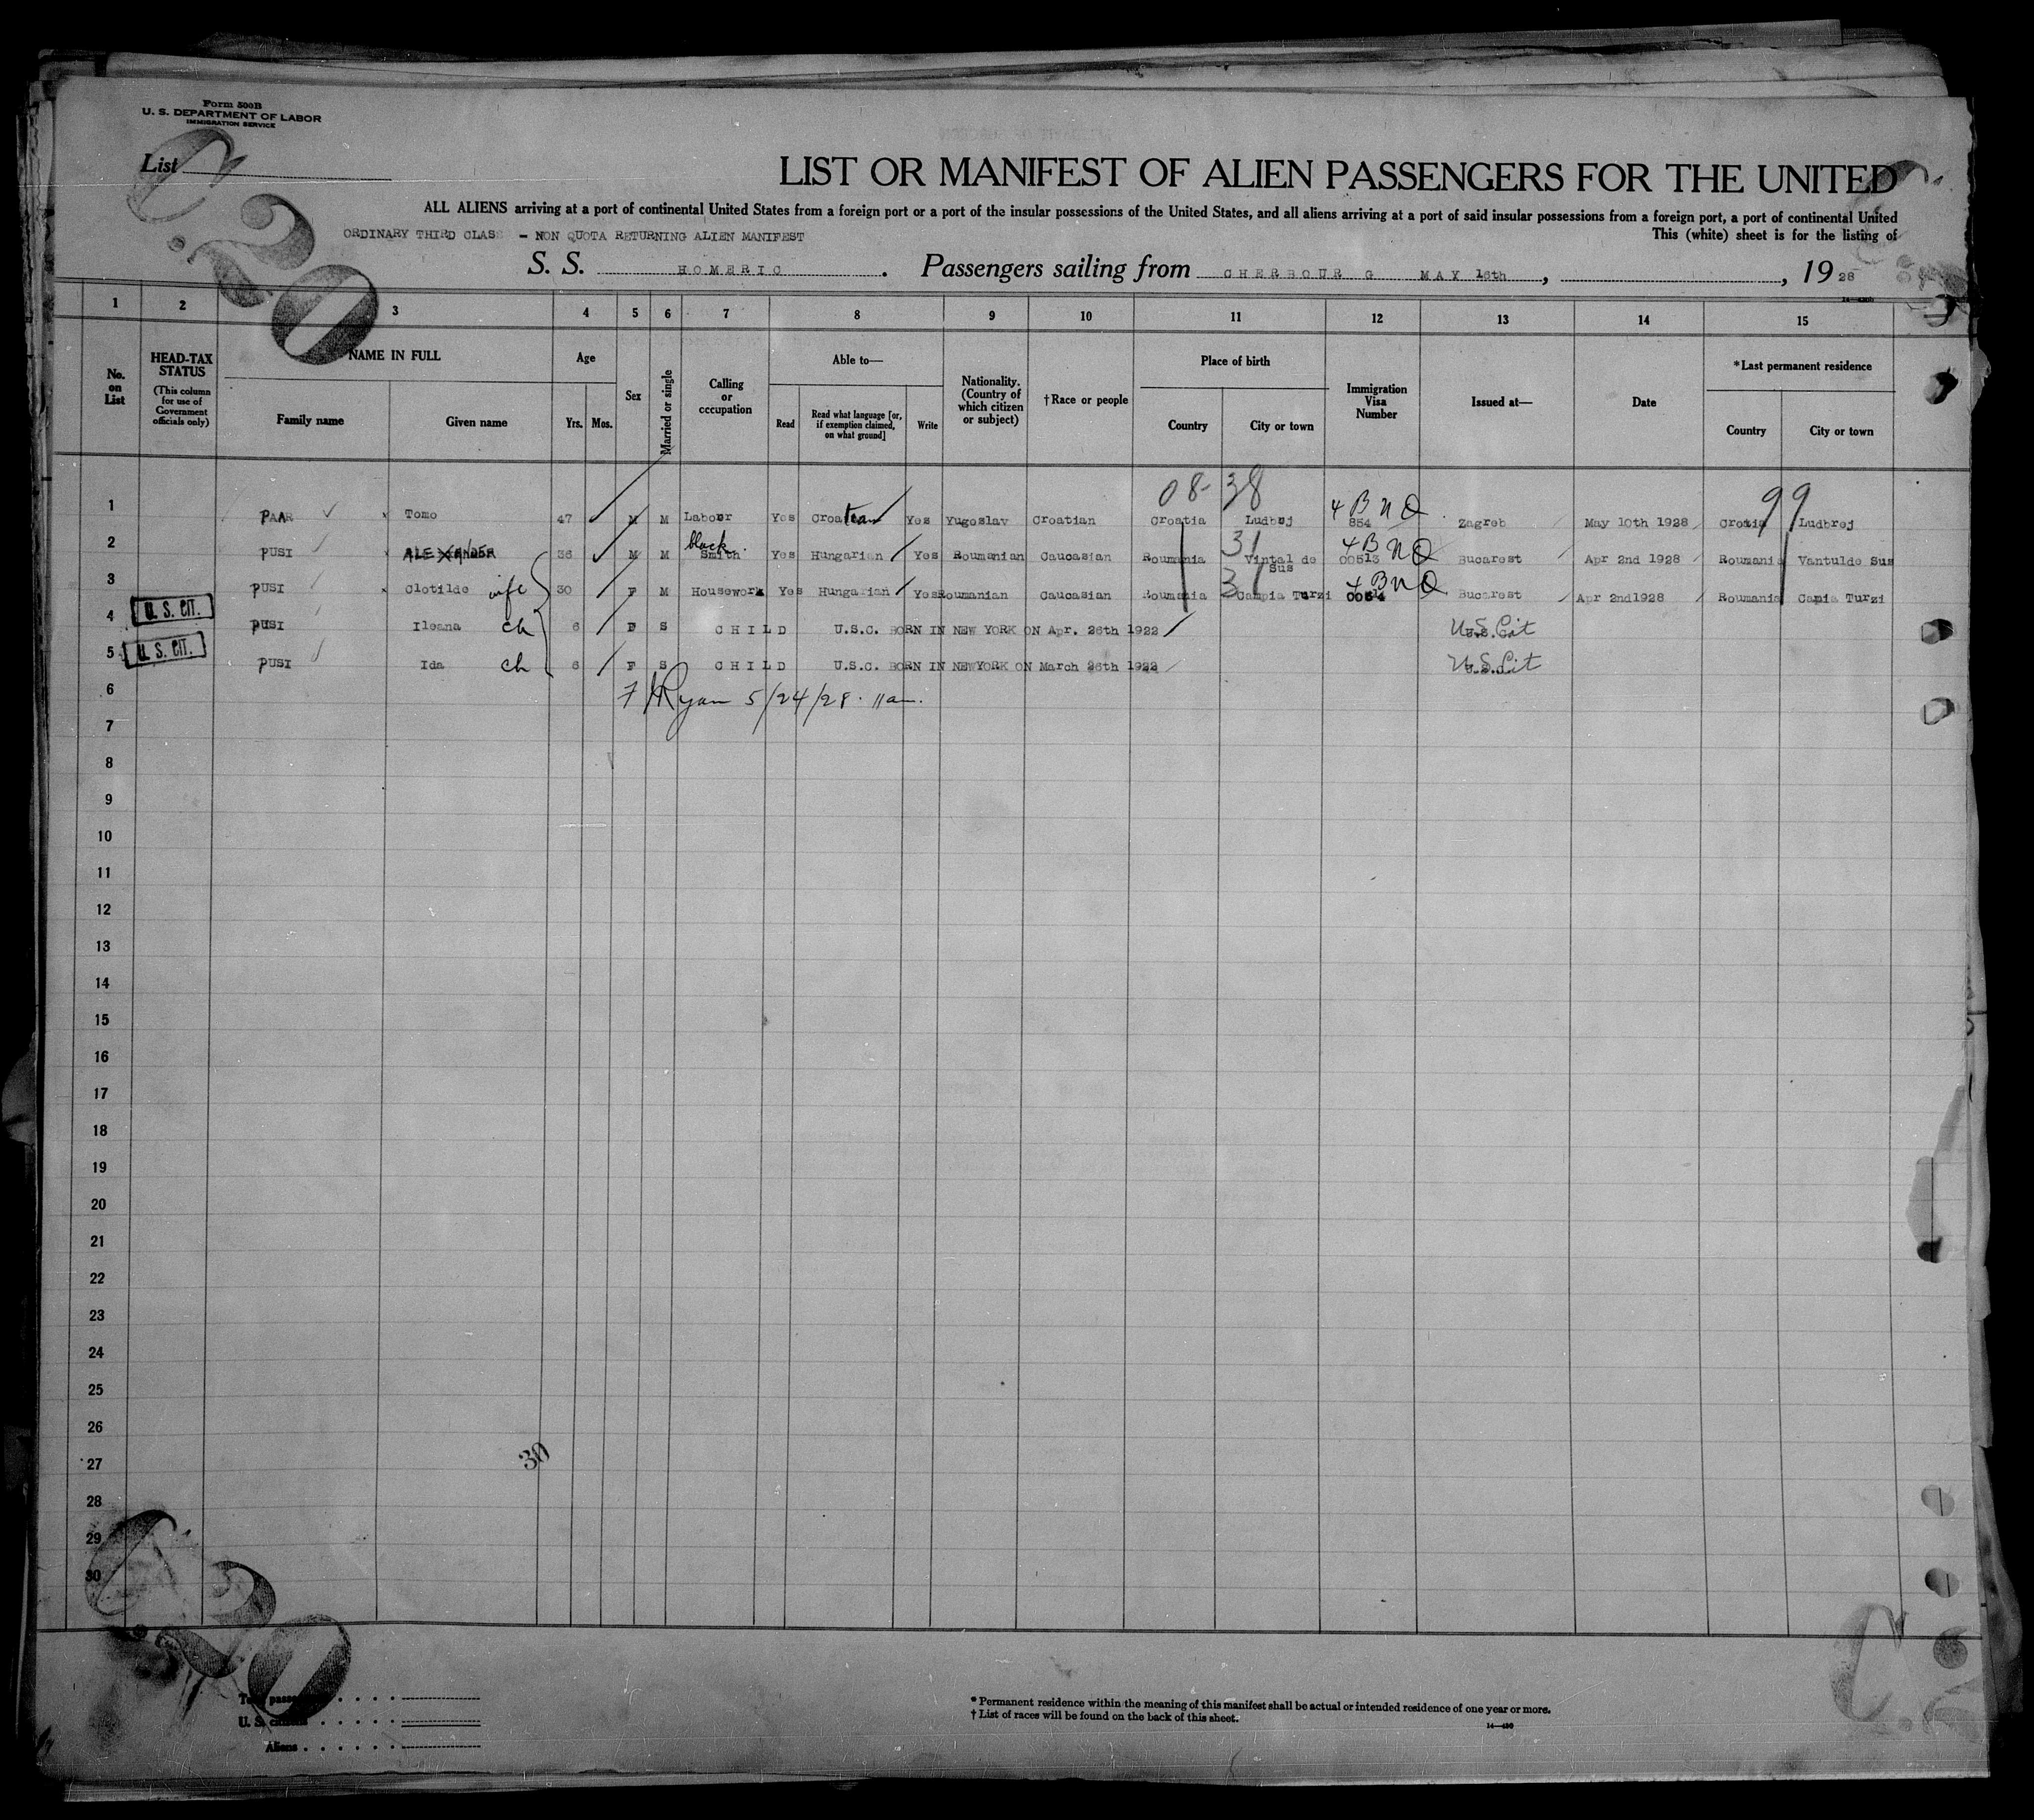 Form 500B
U. S. DEPARTMENT OF LABOR
IMMIGRATION SERVICE
List
C.20
LIST OR MANIFEST OF ALIEN PASSENGERS FOR THE UNITED
ALL ALIENS arriving at a port of continental United States from a foreign port or a port of the insular possessions of the United States, and all aliens arriving at a port of said insular possessions from a foreign port, a port of continental United
ORDINARY THIRD CLASS - NON QUOTA RETURNING ALIEN MANIFEST
This (white) sheet is for the listing of
S. S. HOMERIC. Passengers sailing from CHERBOURG MAY 16th, , 1928
1 2 3 4 5 6 7 8 9 10 11 12 13 14 15
No. on List
HEAD-TAX STATUS
(This column for use of Government officials only)
NAME IN FULL
Family name Given name
Age
Yrs. Mos.
Sex
Married or single
Calling or occupation
Able to—
Read Read what language [or, if exemption claimed, on what ground] Write
Nationality. (Country of which citizen or subject)
†Race or people
Place of birth
Country City or town
Immigration Visa Number
Issued at—
Date
*Last permanent residence
Country City or town
08- 38 4 B N Q 99
1 PAAR Tomo 47 M M Labour Yes Croatian Yes Yugoslav Croatian Croatia Ludbrj 854 Zagreb May 10th 1928 Croatia Ludbrej
black 31 4 B N Q
2 PUSI ALEXANDER 36 M M Smith Yes Hungarian Yes Roumanian Caucasian Roumania Vintal de Sus 00513 Bucarest Apr 2nd 1928 Roumania Vantulde Sus
31 4 B N Q
3 PUSI Clotilde wife 30 F M Housework Yes Hungarian Yes Roumanian Caucasian Roumania Campia Turzi Bucarest Apr 2nd 1928 Roumania Capia Turzi
4 U. S. CIT. PUSI Ileana ch 6 F S CHILD U.S.C. BORN IN NEW YORK ON Apr. 26th 1922 U.S. Cit
5 U. S. CIT. PUSI Ida ch 6 F S CHILD U.S.C. BORN IN NEWYORK ON March 26th 1922 U.S. Cit
6 Ryan 5/24/28. 11am.
7
8
9
10
11
12
13
14
15
16
17
18
19
20
21
22
23
24
25
26
27
30
28
29
30
C.20
U. S. citizens
Aliens
* Permanent residence within the meaning of this manifest shall be actual or intended residence of one year or more.
† List of races will be found on the back of this sheet.
14—430